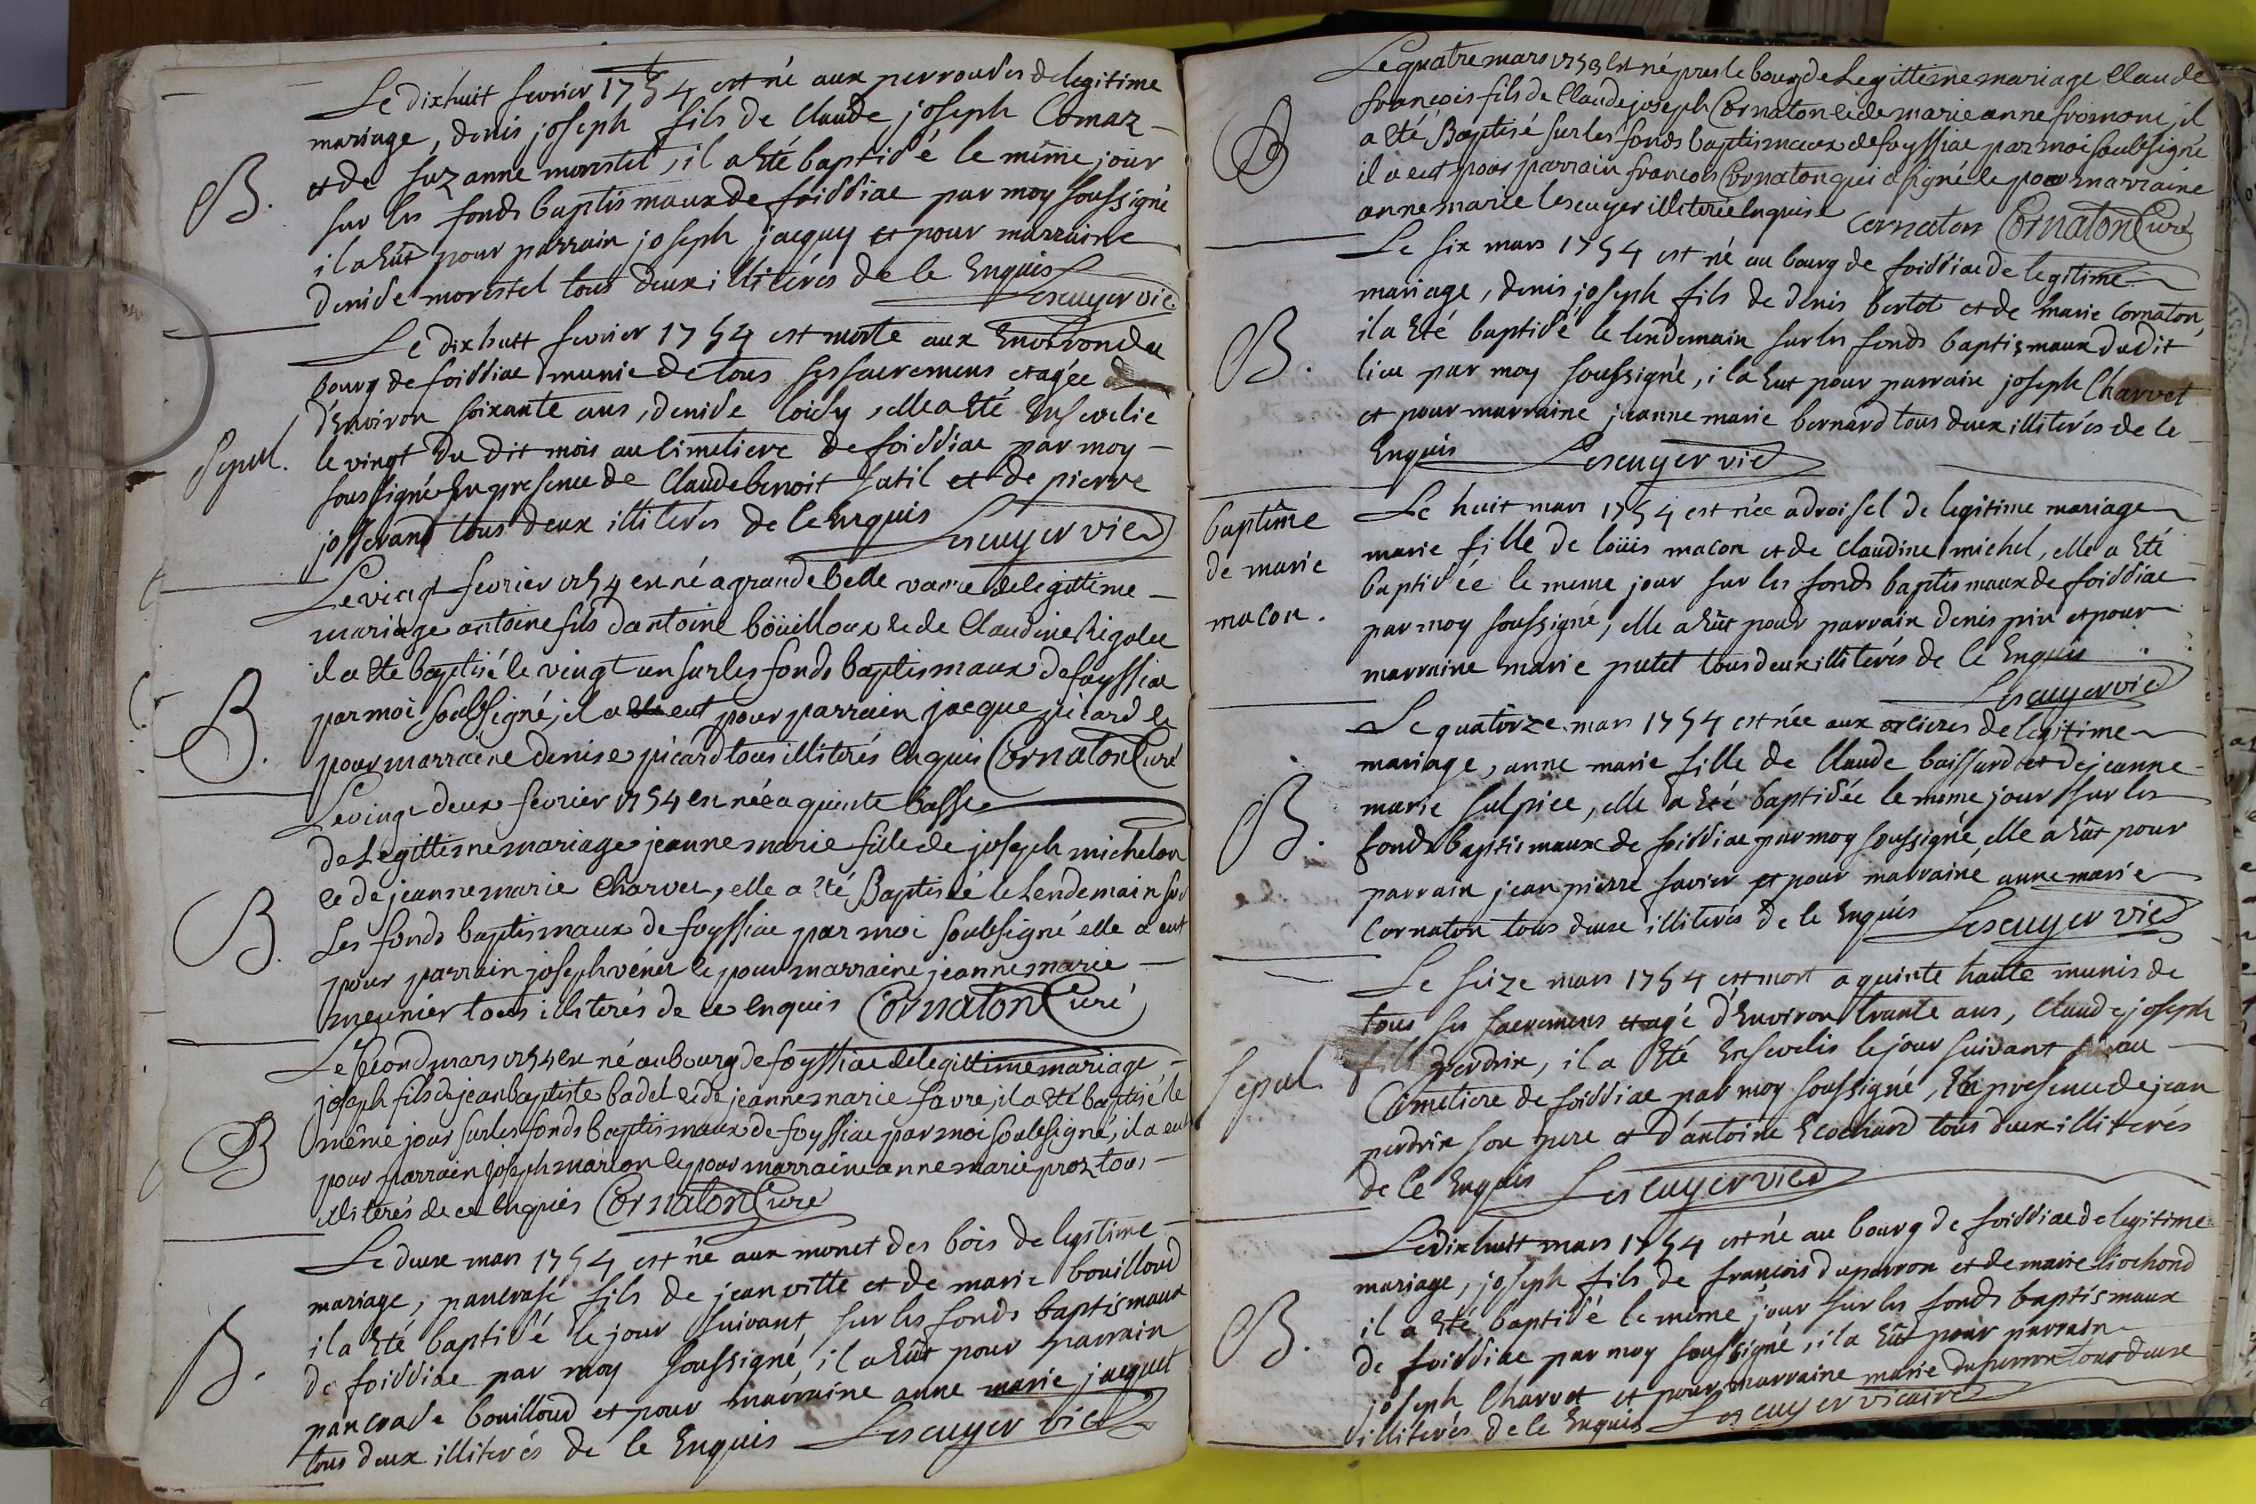 Le dixhuit fevrier 1754 est né aux perroudes de legitime
mariage, denis joseph fils de Claude joseph Comaz
B.
et de suzanne morestel, il a Eté baptisé le même jour
sur les fonds baptismaux de foissiac par moy soussigné
il a Eüt pour parrain joseph jacquy et pour marraine
denise morestel tous deux illiterés de ce Enquis
Lescuyer vic.
Le dixhuit fevrier 1754 est morte aux Environs du
bourg de foissiac munie de tous ses sacremens et agée
d'Environ soixante ans, denise loisy, elle a Eté Ensevelie
Sepul.
le vingt du dit mois au Cimetiere de foissiac par moy
soussigné En presence de Claude benoit sutil et de pierre
josserand tous deux illiterés de ce Enquis Lescuyer vic.
Le vingt fevrier 1754 est né a grande belle vavre de legittime
mariage antoine fils d'antoine boüilloux et de Claudine Rigolee
il a Eté baptisé le vingt un sur les fonds baptismaux de foyssiac
B.
par moi soubsigné, il a eut pour parrain jacque picard et
pour marraine denise picard tous illiterés enquis Cornaton Curé
Le vingt deux fevrier 1754 est née a quinte basse
de Legittime mariage jeanne marie fille de joseph michelon
et de jeanne marie Charvet, elle a Eté Baptisé le Lendemain sur
B.
Les fonds baptismaux de foyssiac par moi soubsigné elle a eut
pour parrain joseph vénet et pour marraine jeanne marie
meunier tous illiterés de ce enquis Cornaton Curé
Le second mars 1754 est né au bourg de foyssiac de legittime mariage
joseph fils de jean baptiste badel et de jeanne marie favre, il a Eté baptisé le
B
même jour sur les fonds baptismaux de foyssiac par moi soubsigné, il a eut
pour parrain joseph marion et pour marraine anne marie proz tous
illiterés de ce enquis Cornaton Curé
Le deux mars 1754 est né aux monet des bois de legitime
mariage, pancrase fils de jean vitte et de marie bouilloud
il a Eté baptisé le jour suivant sur les fonds baptismaux
B.
de foissiac par moy soussigné, il a Eüt pour parrain
pancrase bouilloud et pour marraine anne marie jacquet
tous deux illiterés de ce Enquis Lescuyer vic.
Le quatre mars 1753 est né pres le bourg de Legittime mariage Claude
françois fils de Claude joseph Cornaton et de marie anne fromont, il
B
a Eté Baptisé sur les fonds baptismaux de foyssiac par moi soubsigné
il a eut pour parrain françois Cornaton qui a signé et pour marraine
anne marie lescuyer illiterée enquise Cornaton Cornaton Curé
Le six mars 1754 est né au bourg de foissiac de legitime
mariage, denis joseph fils de denis bertot et de marie Cornaton,
B.
il a Eté baptisé le lendemain sur les fonds baptismaux du dit
lieu par moy soussigné, il a Eut pour parrain joseph Charvet
et pour marraine jeanne marie bernard tous deux illiterés de ce
Enquis Lescuyer vic.
baptême
de marie
macon.
Le huit mars 1754 est née a droisel de legitime mariage
marie fille de loüis macon et de Claudine michel, elle a Eté
baptisée le meme jour sur les fonds baptismaux de foissiac
par moy soussigné, elle a Eüt pour parrain denis pin et pour
marraine marie putet tous deux illiterés de ce Enquis
Lescuyer vic.
Le quatorze mars 1754 est née aux orcieres de legitime
mariage, anne marie fille de Claude buissard et de jeanne
B.
marie sulpice, elle a Eté baptisée le meme jour sur les
fonds baptismaux de foissiac par moy soussigné, elle a Eüt pour
parrain jean pierre favier et pour marraine anne marie
Cornaton tous deux illiterés de ce Enquis Lescuyer vic.
Le seize mars 1754 est mort a quinte haute munis de
tous ses sacremens et agé d'Environ trante ans, Claude joseph
Sepul.
perdrix, il a Eté Ensevelis le jour suivant au
Cimetiere de foissiac par moy soussigné, En presence de jean
perdrix son pere et d'antoine Ecochard tous deux illiterés
de ce Enquis Lescuyer vic.
Le dixhuit mars 1754 est né au bourg de foissiac de legitime
mariage, joseph fils de françois duperron et de marie liochond
B.
il a Eté baptisé le même jour sur les fonds baptismaux
de foissiac par moy soussigné, il a Eüt pour parrain
joseph Charvet et pour marraine marie duperron tous deux
illiterés de ce Enquis Lescuyer vicaire